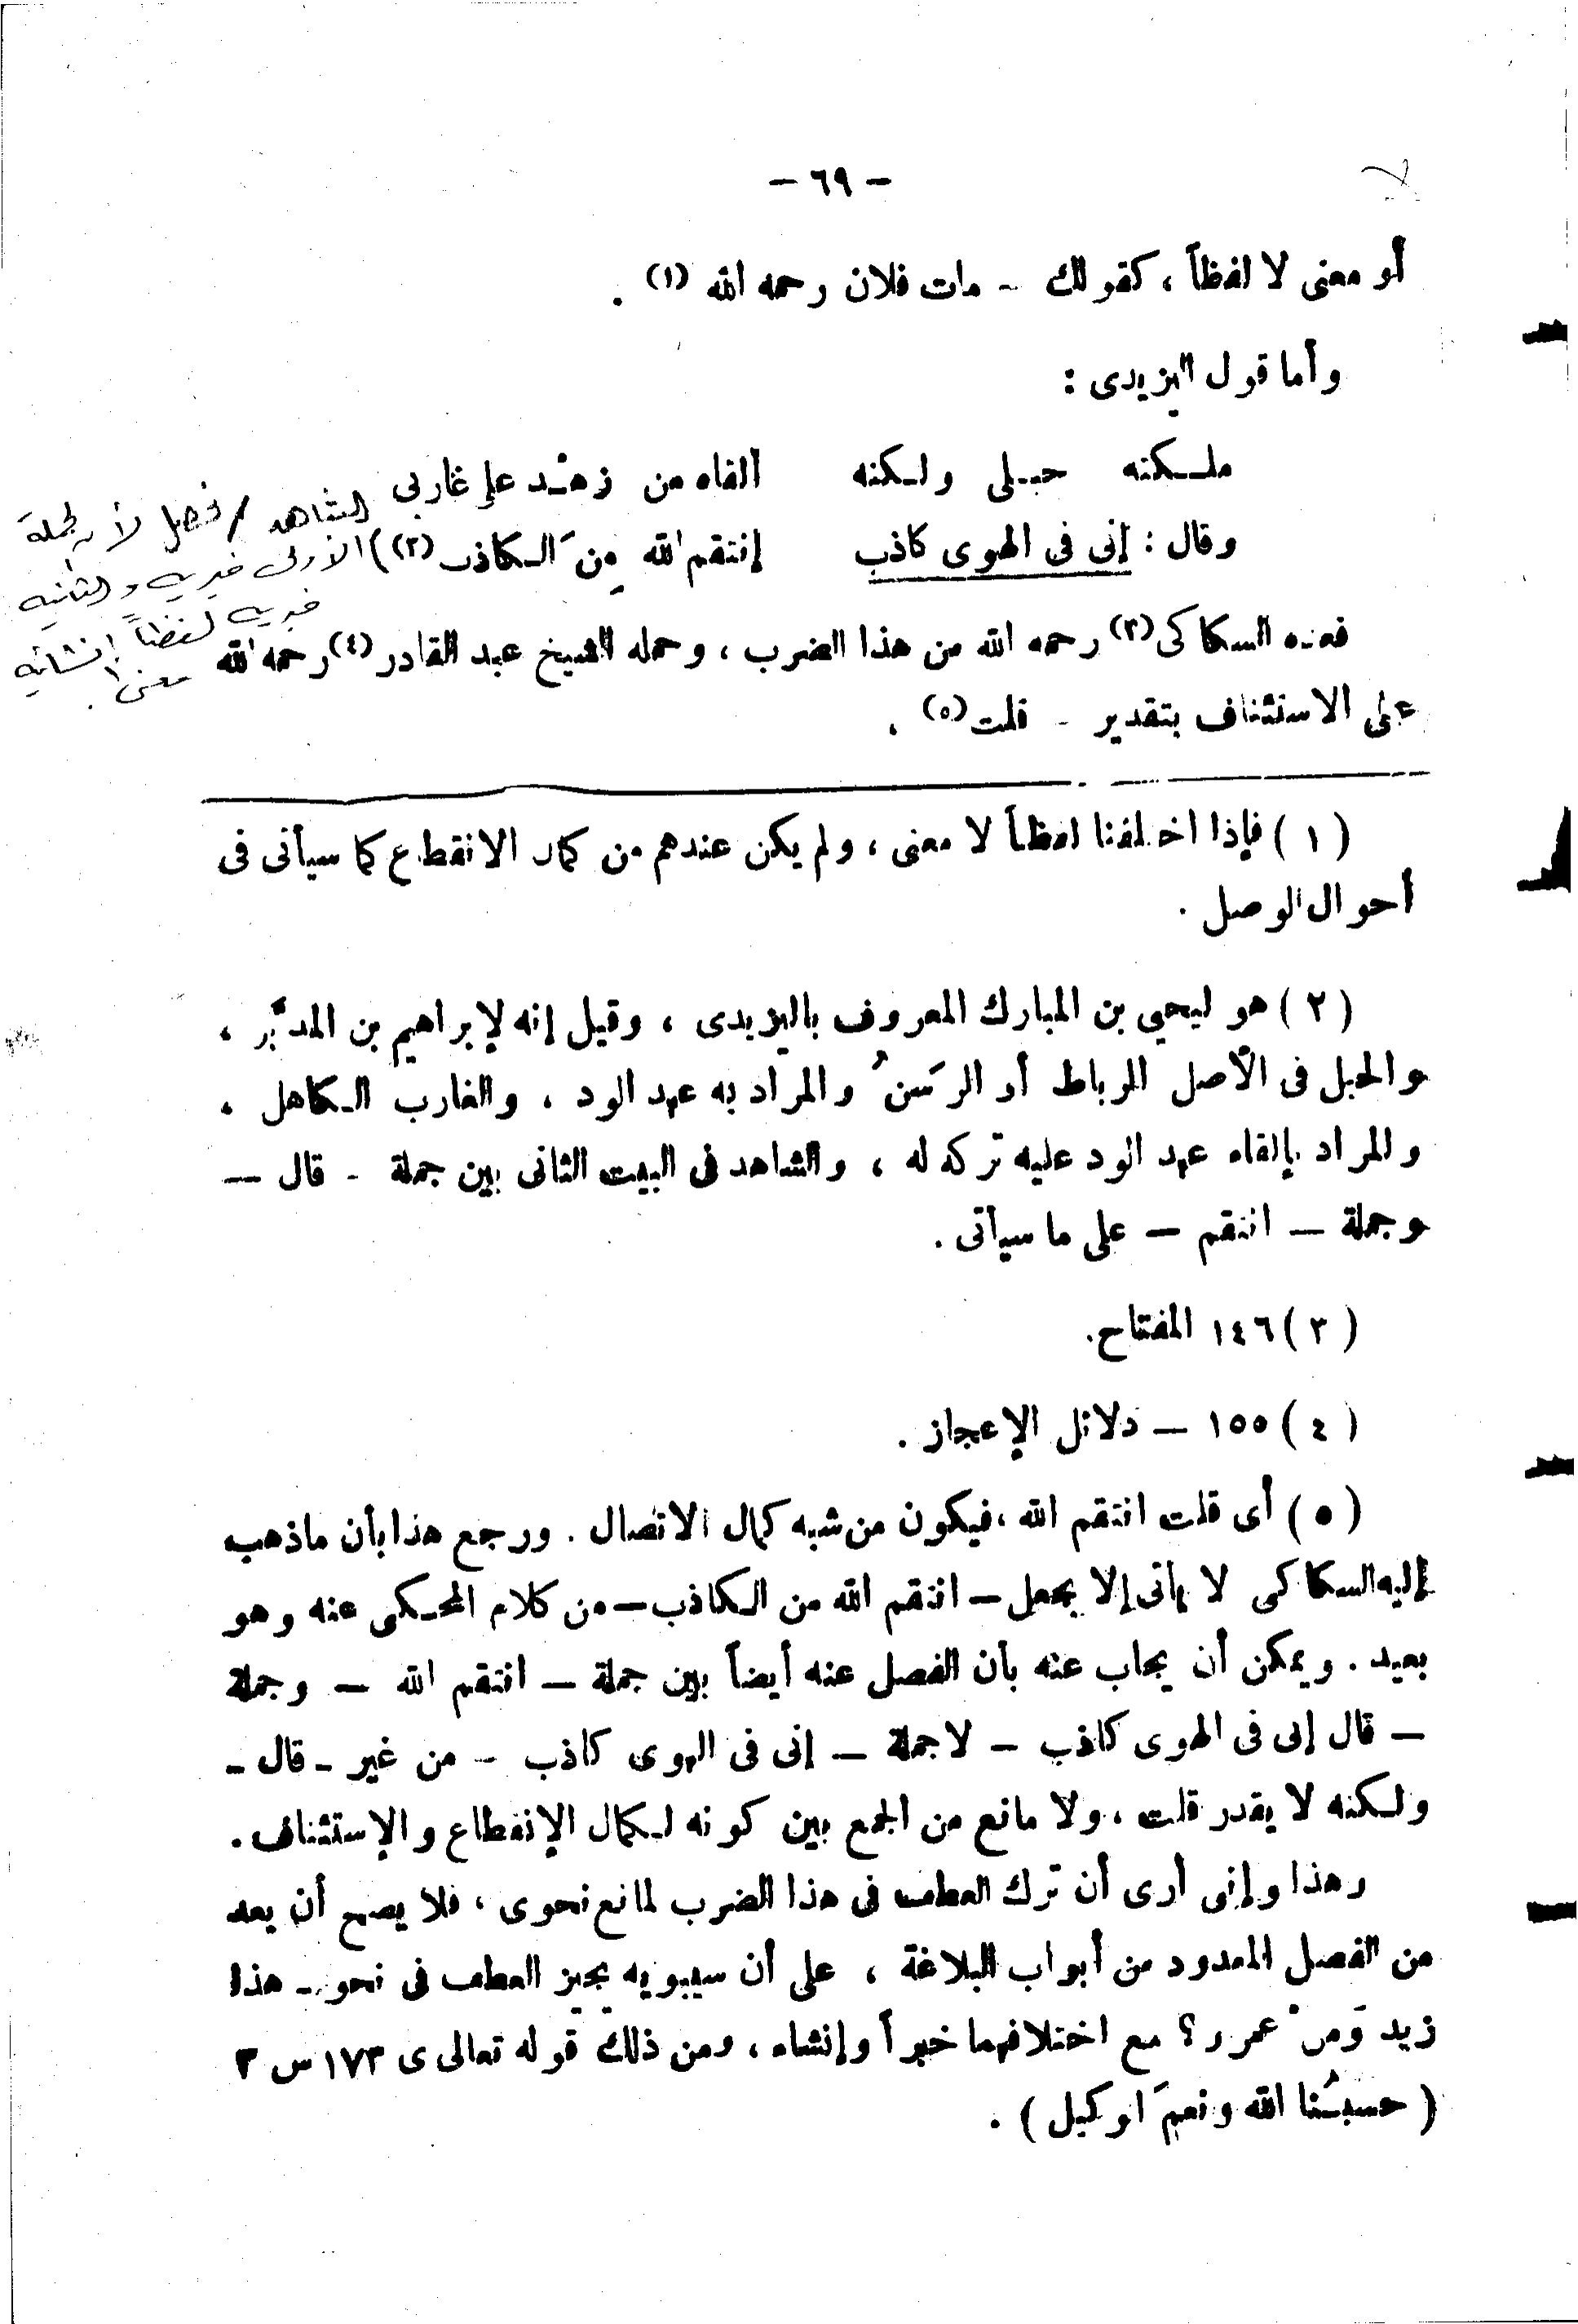 — ٦٩ —
أو معنى لا لفظاً ، كقولك - مات فلان رحمه الله (١) .
وأما قول اليزيدى :
ملـكته حبـلى ولـكنه ألقاه من زهـد على غاربى
وقال : إنى فى الهوى كاذب إنتقم الله من الـكاذب (٢)
الشاهد / فصل لأن الجملة
الأولى خبرية والثانية
خبرية لفظاً إنشائية
معنى .
فعده السكاكى (٣) رحمه الله من هذا الضرب ، وحمله الشيخ عبد القادر (٤) رحمه الله
على الاستئناف بتقدير - قلت (٥) .
( ١ ) فإذا اختلفتا لفظاً لا معنى ، ولم يكن عندهم من كمال الانقطاع كما سيأتى فى
أحوال الوصل .
( ٢ ) هو ليحيى بن المبارك المعروف باليزيدى ، وقيل إنه لإبراهيم بن المدبَّر ،
والحبل فى الأصل الرباط أو الرسَنُ والمراد به عهد الود ، والغارب الـكاهل ،
والمراد بإلقاء عهد الود عليه تركه له ، والشاهد فى البيت الثانى بين جملة - قال —
وجملة — انتقم — على ما سيأتى .
( ٣ ) ١٤٦ المفتاح.
( ٤ ) ١٥٥ — دلائل الإعجاز .
( ٥ ) أى قلت انتقم الله ، فيكون من شبه كمال الاتصال . ورجع هذا بأن ماذهب
إليه السكاكى لا يأتى إلا بجعل — انتقم الله من الـكاذب — من كلام المحـكى عنه وهو
بعيد . ويمكن أن يجاب عنه بأن الفصل عنه أيضاً بين جملة — انتقم الله — وجملة
— قال إنى فى الهوى كاذب — لا جملة — إنى فى الهوى كاذب - من غير - قال -
ولـكنه لا يقدر قلت ، ولا مانع من الجمع بين كونه لـكمال الإنقطاع والإستئناف .
وهذا وإنى أرى أن ترك العطف فى هذا الضرب لمانع نحوى ، فلا يصح أن يعد
من الفصل المعدود من أبواب البلاغة ، على أن سيبويه يجيز العطف فى نحو - هذا
زيد ومَنْ عمرو ؟ مع اختلافهما خبراً وإنشاء ، ومن ذلك قوله تعالى ى ١٧٣ س ٣
( حسبُنا الله ونعمَ الوكيل ) .